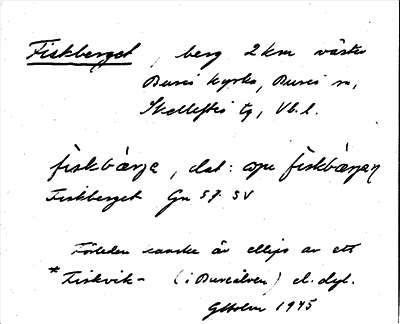 Fiskberget, berg 2 km väster
Bureå kyrka, Bureå sn,
Skellefteå tg, Vb.l.
fìskbærje, dat: opa fìskbærjan
Fiskberget Gn 57. SV
Förleden kanske är ellips av ett
*Fiskvik- (i Bureälven) el. dyl.
GHolm 1945